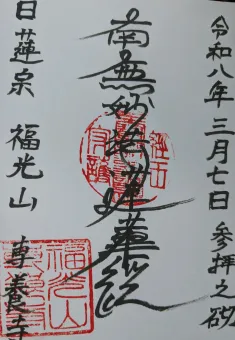 令和八年三月七日 参拝之砌
南無妙法蓮華経
日蓮宗 福光山 専養寺
福光山